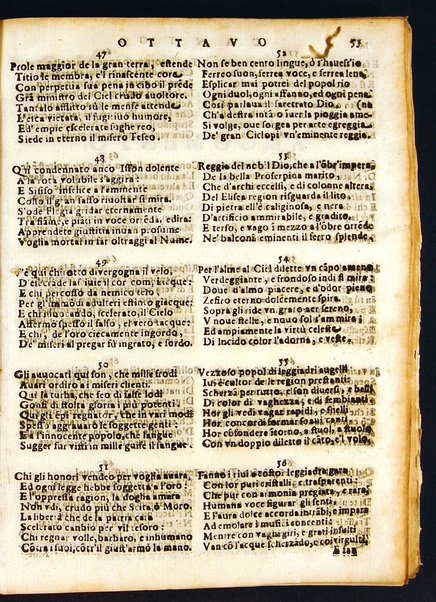 OTTAVO 53
47
Prole maggior de la gran terra, estende
Titio le membra, e'l rinascente core
Con perpetua sua pena in cibo il prēde
Grā ministro del Ciel crudo auoltore.
Tantalo afflitto sù le mense attende
L'esca vietata, il fugitiuo humore,
Ed empie escelerate sughe reo,
Siede in eterno il misero Teseo.
48
Qui condennato anco Ission dolente
A la rota volubile s'aggira:
E Sisifo infelice a l'eminente
Costo il gran sasso riuoltar si mira.
S'ode Flegia gridar eternamente
Tra fiāme, e piāti in voce orrēda, edira:
Apprendete giustitia inuan prosume
Voglia mortal in far oltraggi al Nume.
49
V'è qui chi otto divergogna il velo,
D'etcrade las iue il cor com, incque:
E chi percosso da nemico telo
Per gl'immondi adulteri estinto giacque:
E chi suocando, scelerato, il Cielo
Affermo spesso il falso, e'l vero tacque:
E chi, de l'oro ricercante ingordo,
De' miseri al pregar fù ingrato, e sordo.
50
Gli auuocati qui son, che mille frodi
Auari ordiro ai miseri clienti:
Qui la turba, che feo di false lodi
Gonfi di stolta ambition i più potenti:
Qui gli epi regnator, che in vari modi
Spess' aggrauaro le soggette genti:
E l'innocente popolo, che langue
Sugger fur visti in mille guise il sangue.
51
Chi gli honori vendeo per voglia auara,
Ed ogni legge hebbe soggetta a l'oro:
E l'oppressa ragion, la doglia amara
Non vdì, crudo più che Scita, ò Moro.
La libertà che da la patria cara
Scelerato cambiò per vil tesoro:
Chi regnar volle, barbaro, e inhumano
Cōtra i suoi, cōtr'il giust'armò la mano.
52
Non se ben cento lingue, ò l'hauess'io
Ferreo suon, ferrea voce, e ferrea lena
Esplicar mai potrei del popol rio
Ogni duol, ogni affanno, ed ogni pena
Così parlaua il faretrato Dio (na
Ch'a destra intāto ou'aer la pioggia ame
Si volge, oue sorgea per arte egreggia
De' gran Ciclopi vn'eminente reggia.
53
Reggia del nēbil Dio, che a l'ōbr'impera,
De la bella Proserpina marito,
Che d'archi eccelsi, e di colonne altera,
Del Elisea region risguarda il lito,
Di pietra ell'è caliginosa, e nera
D'artificio ammirabile, e gradito,
E terso, e vago ì mezzo a l'ōbre orrēde
Ne' balconi eminenti il ferro splende.
54
Per l'alme al Ciel dilette vn cāpo ameno
Verdeggiante, e frondoso indi si mira:
Doue d'almo piacere, e d'odor pieno
Zefiro eterno dolcemente spira.
Sopra gli ride vn grato aer sereno,
V noue stelle, e nouo sol s'ammira:
Ed ampiamente la virtù celeste
Di lucido color l'adorna, e veste.
55
Vezzoso popol di leggiadri augelli
Iui è cultor de le region prestanti:
Scherzā per tutto, e son diuersi, e belli
Di color di vaghezza, e di sembianti
Hor gli vedi vagar rapidi, e snelli
Hor concordi formar soaui canti:
Hor cōfondere ātorno, a stuol, a stuolo
Con vn doppio diletto il cāto, e'l volo.
56
Fanno i riui a costor leggiadra gara
Con lor puri cristalli, e trasparenti:
Che pur con armonia pregiata, e rara,
Humana voce figurar gli senti:
E l'aura dolce accorda intrābi, e impara
Ad emolare i musici concenti:
Mentre con vaghi giri, e grati insulti
Van cō l'acque scherzādo, e coi virgulti,